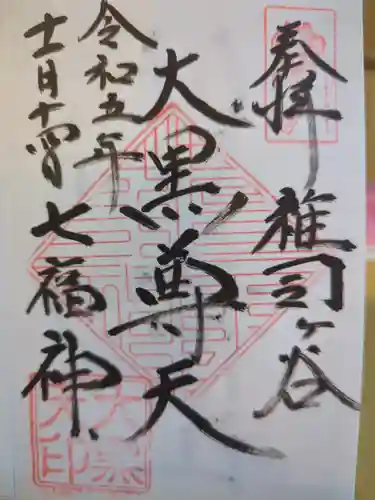 奉拝
雑司ヶ谷
大黒尊天
令和五年
十一月十四日
七福神